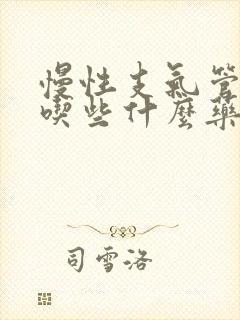 慢性支氣管
喫些什麼藥
司雪洛